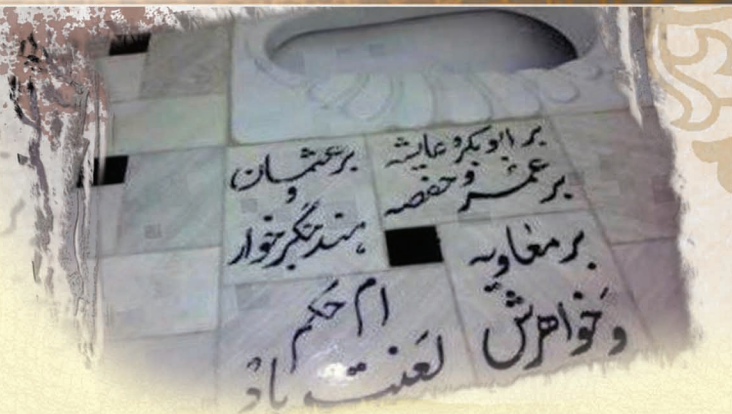 بر ابوبکر و عایشه
بر عمر و حفصه
بر عثمان
و
هند جگرخوار
بر معاویه
و خواهرش
ام حکم
لعنت باد